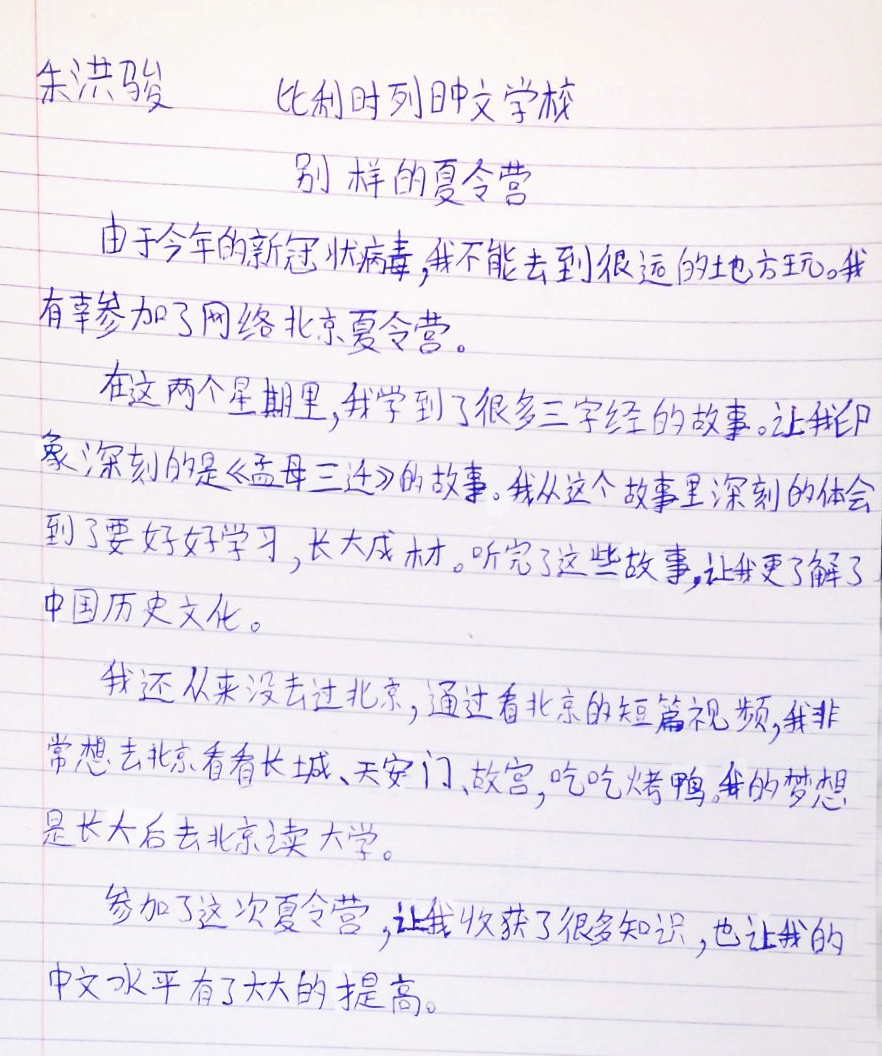 朱洪骏 比利时列日中文学校
别样的夏令营
由于今年的新冠状病毒,我不能去到很远的地方玩。我
有幸参加了网络北京夏令营。
在这两个星期里,我学到了很多三字经的故事。让我印
象深刻的是《孟母三迁》的故事。我从这个故事里深刻的体会
到了要好好学习,长大成材。听完了这些故事,让我更了解了
中国历史文化。
我还从来没去过北京,通过看北京的短篇视频,我非
常想去北京看看长城、天安门、故宫,吃吃烤鸭。我的梦想
是长大后去北京读大学。
参加了这次夏令营,让我收获了很多知识,也让我的
中文水平有了大大的提高。